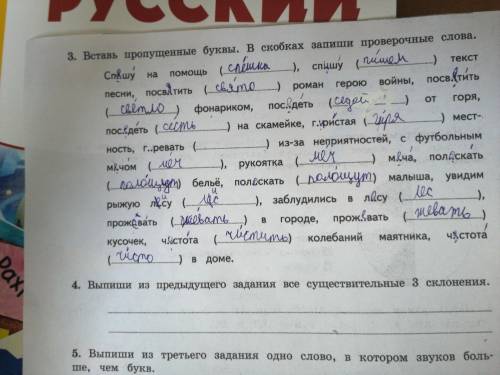 РУССКИЙ
3. Вставь пропущенные буквы. В скобках запиши проверочные слова.
Спешу на помощь (спешка), спишу (пишем) текст
песни, посвятить (свято) роман герою войны, посветить
(светло) фонариком, поседеть (седой) от горя,
посидеть (сесть) на скамейке, г..ристая (гора) мест-
ность, г..ревать (                ) из-за неприятностей, с футбольным
мячом (мяч), рукоятка (меч) меча, полоскать
(полощут) бельё, пол..скать (полощут) малыша, увидим
рыжую лису (лис), заблудились в лесу (лес),
проживать (жевать) в городе, прожевать (жевать)
кусочек, частота (чистить) колебаний маятника, чистота
(чисто) в доме.
4. Выпиши из предыдущего задания все существительные 3 склонения.
5. Выпиши из третьего задания одно слово, в котором звуков боль-
ше, чем букв.